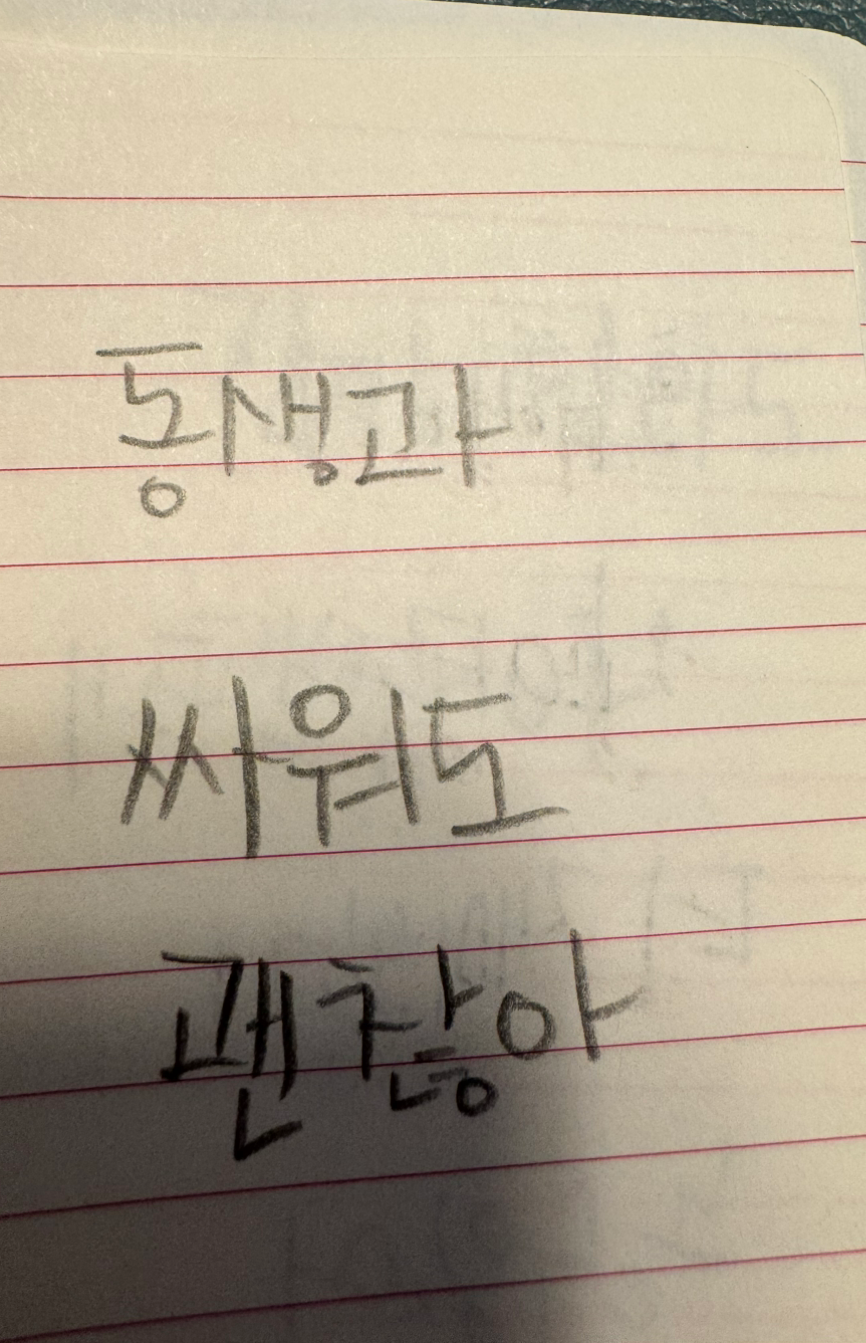 동생과
싸워도
괜찮아